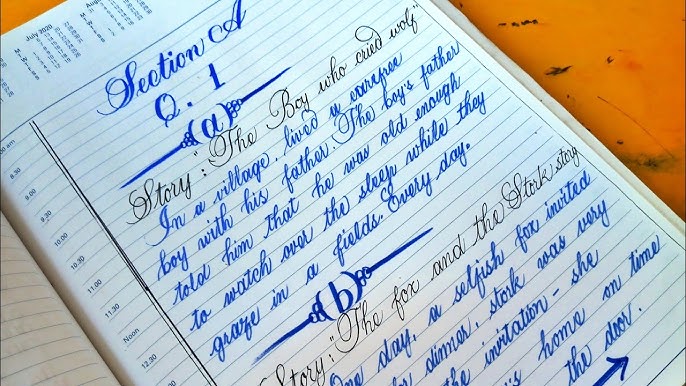 July 2020
Section A
Q. 1
(a)
Story: "The Boy who cried wolf"
In a village, lived a carefree
boy with his father. The boy's father
told him that he was old enough
to watch over the sleep while they
graze in a fields. Every day.
(b)
Story: "The fox and the Stork story
One day, a selfish fox invited
dinner, stork was very
the invitation - she
home on time
the door.
8.30
9.00
9.30
10.00
10.30
11.00
11.30
Noon
12.30